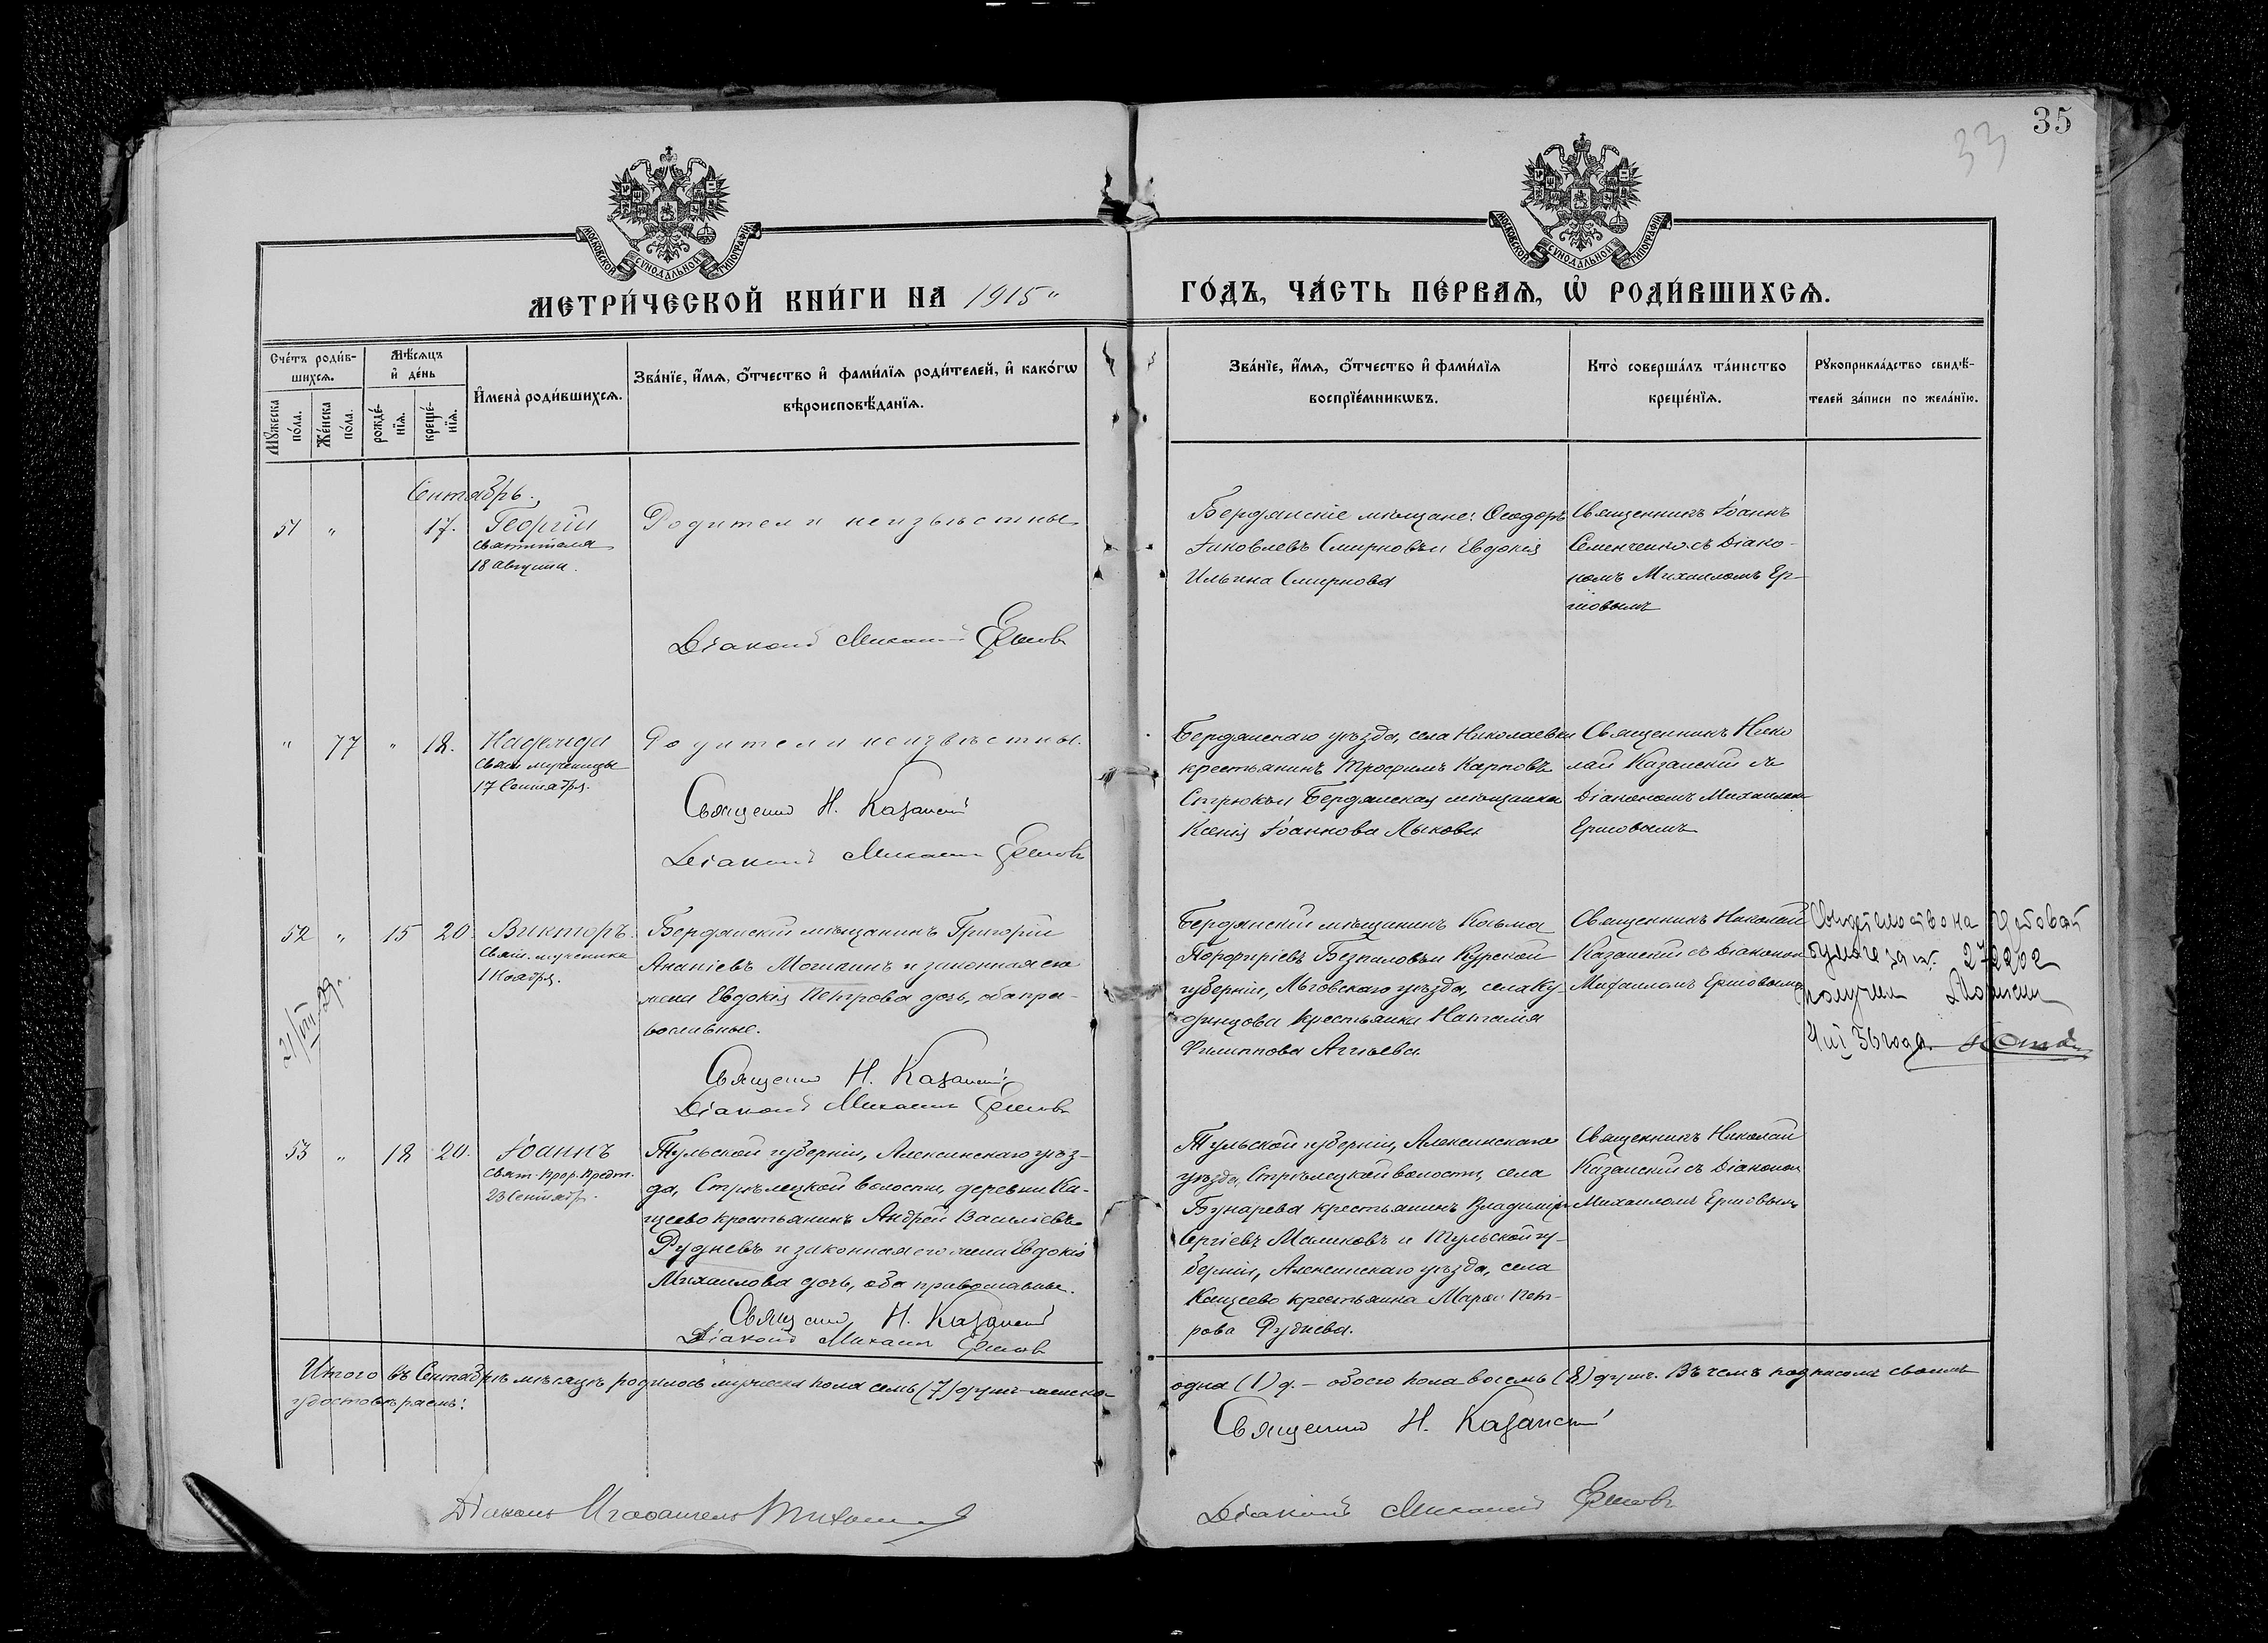 35
33
МОСКОВСКОЙ СѴНОДАЛЬНОЙ ТИПОГРАФІИ
МОСКОВСКОЙ СѴНОДАЛЬНОЙ ТИПОГРАФІИ
МЕТРИ́ЧЕСКОЙ КНИ́ГИ НА 1915
ГО́ДЪ, ЧА́СТЬ ПЕ́РВАѦ, Ѽ РОДИ́ВШИХСѦ.
Сче́тъ роди́в-
шихсѧ.
Мꙋжеска по́ла.
Же́нска по́ла.
Мѣ́сѧцъ
и҆ де́нь
рожде́-
нїѧ.
креще́-
нїѧ.
И҆мена̀ роди́вшихсѧ.
Зва́нїе, и҆́мѧ, ѻ҆́тчество и҆ фами́лїѧ роди́телей, и҆ како́гѡ
вѣроисповѣ́данїѧ.
Зва́нїе, и҆́мѧ, ѻ҆́тчество и҆ фами́лїѧ
воспрїе́мникѡвъ.
Кто̀ соверша́лъ та́инство
креще́нїѧ.
Рꙋкоприкла́дство свидѣ́-
телей за́писи по жела́нїю.
Сентябрь.
51 " 17. Георгій
святителя
18 августа.
Родители неизвѣстны
Бердянскіе мѣщане: Ѳеодоръ
Іаковлевъ Смирновъ и Евдокія
Ильина Смирнова
Священникъ Іоаннъ
Семенченко съ Діако-
номъ Михаиломъ Ер-
шовымъ
Діаконъ Михаилъ Ершовъ
" 77 " 18. Надежда
свят мученицы
17 Сентября.
Родители неизвѣстны.
Священникъ Н. Казанскій
Діаконъ Михаилъ Ершовъ
Бердянскаго уѣзда, села Николаевки
крестьянинъ Трофимъ Карповъ
Стрюкъ и Бердянская мѣщанка
Ксенія Іоаннова Лыкова
Священникъ Нико
лай Казанскій съ
Діакономъ Михаиломъ
Ершовымъ
52 " 15 20. Викторъ.
Свят. мученика
1 Ноября.
21/VIII 29г.
Бердянскій мѣщанинъ Григорій
Ананіевъ Мошкинъ и законная его
жена Евдокія Петрова дочь, оба пра-
вославные.
Священникъ Н. Казанскій
Діаконъ Михаилъ Ершовъ
Бердянскій мѣщанинъ Козьма
Порфиріевъ Безпаловъ и Курской
губерніи, Льговскаго уѣзда, села Ку-
дринцова крестьянка Наталія
Филиппова Агѣева.
Священникъ Николай
Казанскій съ Діакономъ
Михаиломъ Ершовымъ
Свидетельство на гербовой
бумаге за №. 272202
получил
4/III 56 года.
53 " 18 20. Іоаннъ
Свят. Прор. Предт.
23 Сентябр.
Тульской губерніи, Алексинскаго уѣз-
да, Стрѣлецкой волости, деревни Ка-
щеево крестьянинъ Андрей Василіевъ
Рудневъ и законная его жена Евдокія
Михаилова дочь, оба православные.
Священникъ Н. Казанскій
Діаконъ Михаилъ Ершовъ
Тульской губерніи, Алексинскаго
уѣзда, Стрѣлецкой волости, села
Бунарева крестьянинъ Владиміръ
Сергіевъ Маликовъ и Тульской гу-
берніи, Алексинскаго уѣзда, села
Кащеево крестьянка Марѳа Пет-
рова Руднева.
Священникъ Николай
Казанскій съ Діакономъ
Михаиломъ Ершовымъ
Итого въ Сентябрѣ мѣсяцѣ родилось мужеска пола семь (7) душъ женска-
одна (1) д. — обоего пола восемь (8) душъ. Въ чемъ подписомъ своимъ
удостовѣряемъ:
Священникъ Н. Казанскій
Діаконъ
Діаконъ Михаилъ Ершовъ